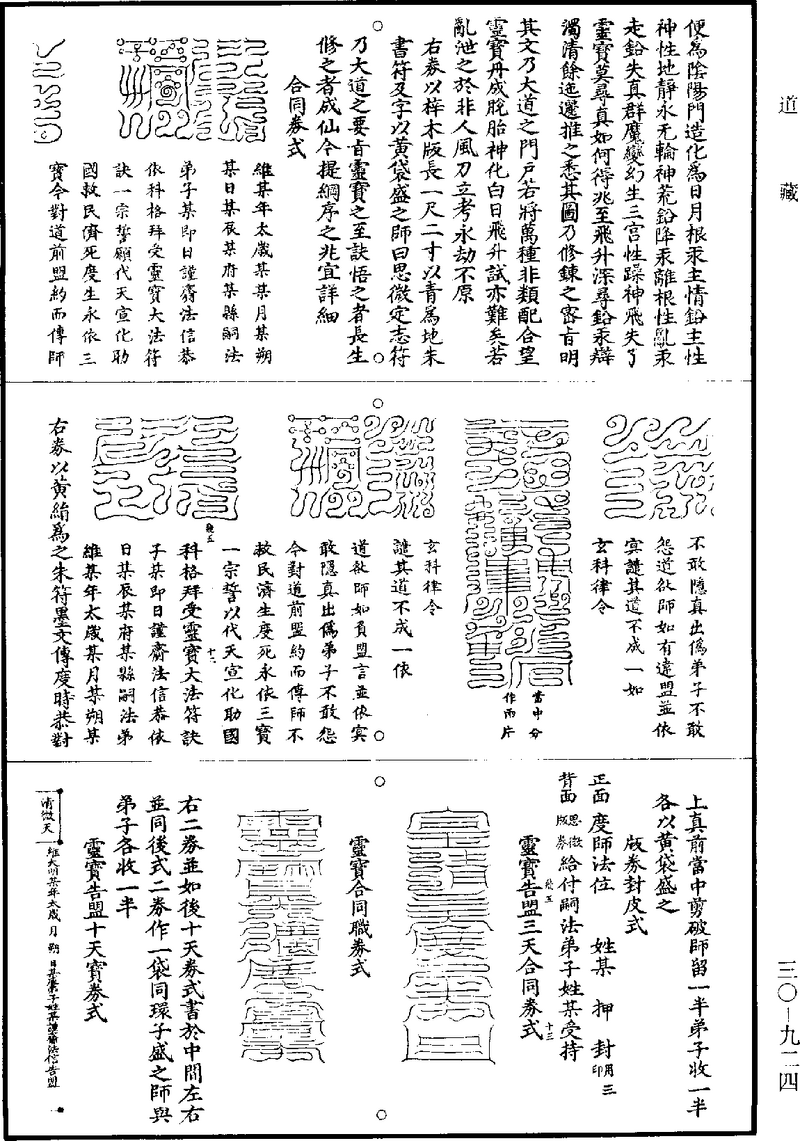 道藏
三〇—九二四
便為陰陽門造化為日月根汞主情鉛主性
神性地靜永无輪神荒鉛降汞離根性亂汞
走鉛失真群魔變幻生三宫性躁神飛失了
靈寶莫尋真如何得兆至飛升深尋鉛汞辯
濁清餘迤邐推之悉其圖乃修鍊之密旨明
其文乃大道之門戶若將萬種非類配合望
靈寶丹成脫胎神化白日飛升試亦難矣若
亂泄之於非人風刀立考永劫不原
右券以梓木版長一尺二寸以青為地朱
書符及字以黃袋盛之師曰思微定志符
乃大道之要旨靈寶之至訣悟之者長生
修之者成仙今提綱序之兆宜詳細
合同券式
維某年太歲某某月某朔
某日某辰某府某縣嗣法
弟子某即日謹齋法信恭
依科格拜受靈寶大法符
訣一宗誓願代天宣化助
國救民濟死度生永依三
寶今對道前盟約而傳師
不敢隱真出偽弟子不敢
怨道欲師如有違盟並依
㝠譴其道不成一如
玄科律令
當中分
作兩片
玄科律令
譴其道不成一依
道欲師如負盟言並依㝠
敢隱真出偽弟子不敢怨
今對道前盟約而傳師不
救民濟生度死永依三寶
一宗誓以代天宣化助國
十二
科格拜受靈寶大法符訣
燒五
子某即日謹齋法信恭依
日某辰某府某縣嗣法弟
維某年太歲某月某朔某
右券以黃絹為之朱符墨文傳度時恭對
上真前當中剪破師留一半弟子收一半
各以黃袋盛之
版券封皮式
正面 度師法位 姓某 押 封 用三印
背面 思微版券 給付嗣法弟子姓某受持
靈寶告盟三天合同券式
十三
靈寶合同職券式
右二券並如後十天券式書於中間左右
並同後式二券作一袋同環子盛之師與
弟子各收一半
靈寶告盟十天寶券式
清微天
維大明某年太歲 月 朔 日某屬弟子姓某謹齎法信告盟